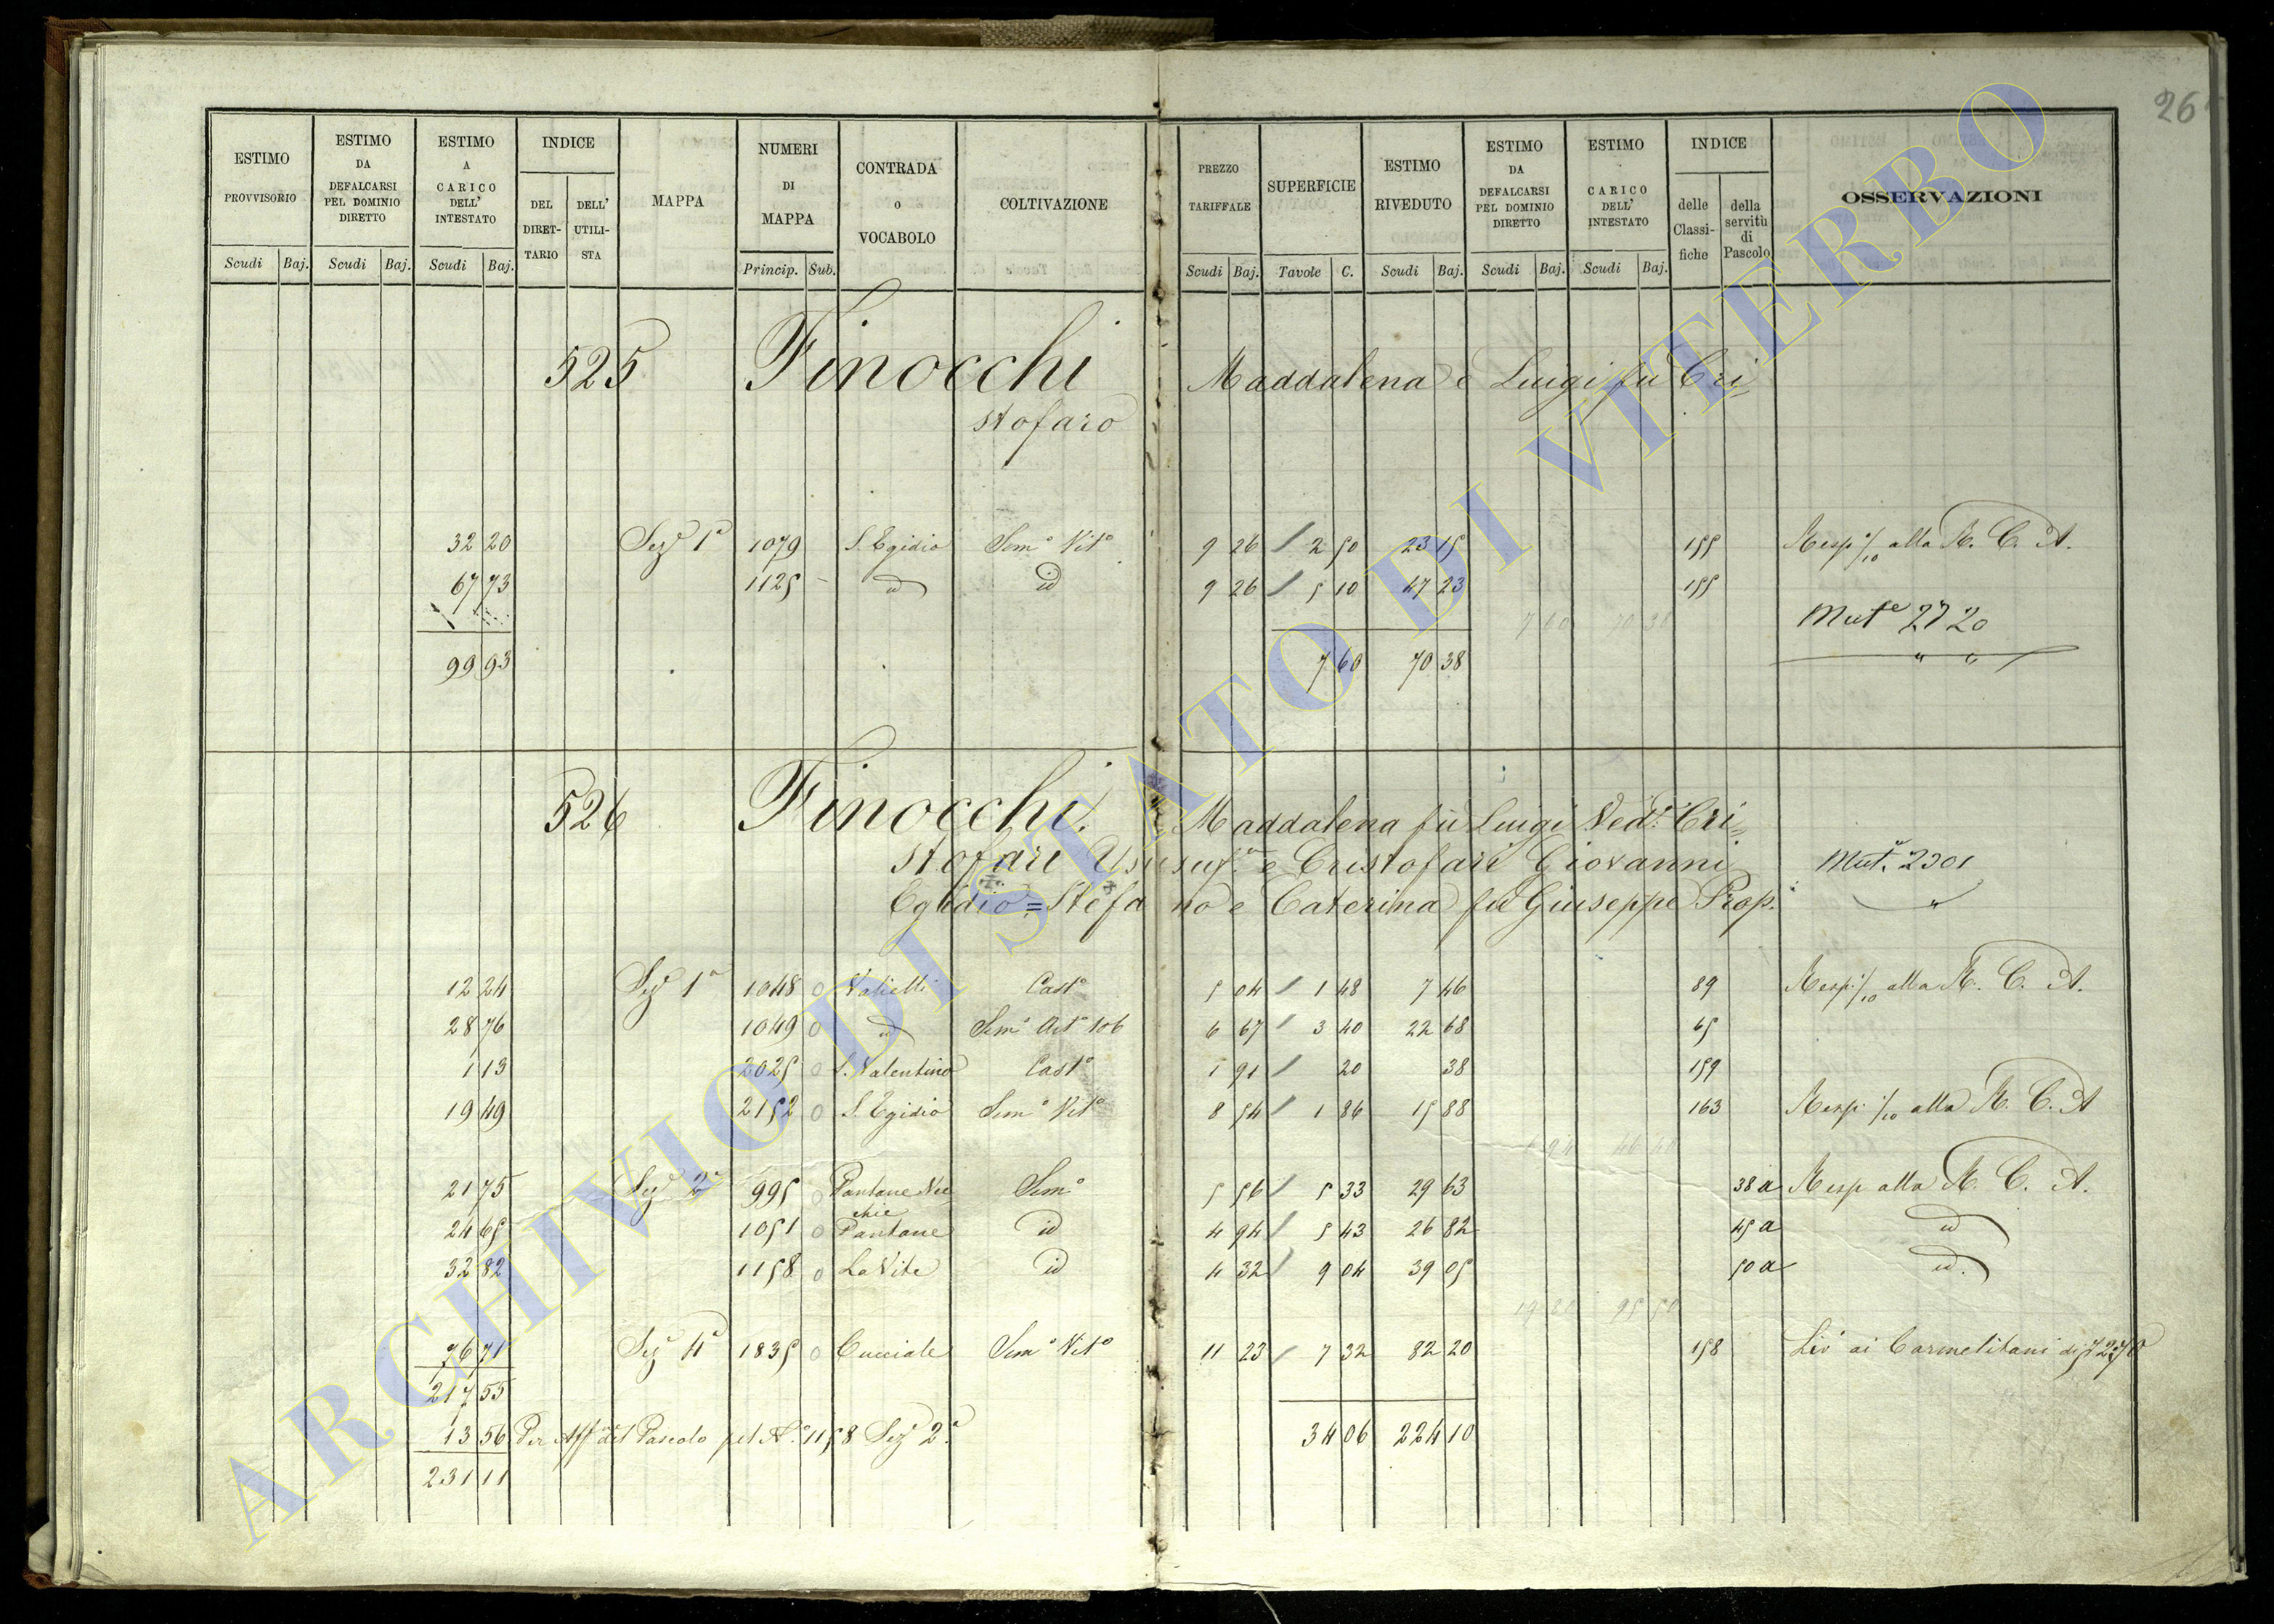 26
ESTIMO PROVVISORIO | ESTIMO DA DEFALCARSI PEL DOMINIO DIRETTO | ESTIMO A CARICO DELL' INTESTATO | INDICE | MAPPA | NUMERI DI MAPPA | CONTRADA O VOCABOLO | COLTIVAZIONE | PREZZO TARIFFALE | SUPERFICIE | ESTIMO RIVEDUTO | ESTIMO DA DEFALCARSI PEL DOMINIO DIRETTO | ESTIMO A CARICO DELL' INTESTATO | INDICE | OSSERVAZIONI
DEL DIRET-TARIO | DELL' UTILI-STA | delle Classi-fiche | della servitù di Pascolo
Scudi | Baj. | Scudi | Baj. | Scudi | Baj. | Princip. | Sub. | Scudi | Baj. | Tavole | C. | Scudi | Baj. | Scudi | Baj. | Scudi | Baj.
525 Finocchi Maddalena e Luigi fu Cri=
stofaro
32 20 Sez. 1a 1079 S. Egidio Sem.o Vit.o 9 26 / 2 50 23 15 155 Resp. 1/10 alla R. C. A.
67 73 1125 - id id 9 26 / 5 10 47 23 155
7 60 70 38 Mut.e 2720
99 93 7 60 70 38
526 Finocchi Maddalena fu Luigi Ved.a Cri=
stofari Usufr.a e Cristofari Giovanni Mut. 2301
Egidio = Stefano e Caterina fu Giuseppe Prop.
12 24 Sez. 1a 1048 0 Valietti Cast.o 5 04 / 1 48 7 46 89 Resp. 1/10 alla R. C. A.
28 76 1049 0 id Sem.o Art. 106 6 67 / 3 40 22 68 65
1 13 2025 0 S. Valentino Cast.o 1 91 / 20 38 159
19 49 2152 0 S. Egidio Sem.o Vit.o 8 54 / 1 86 15 88 163 Resp. 1/10 alla R. C. A
21 75 Sez. 2a 995 0 Pantane Vecchie Sem.o 5 56 / 5 33 29 63 38 a Resp alla R. C. A.
24 65 1051 0 Pantane id 4 94 / 5 43 26 82 45 a id
32 82 1158 0 La Vite id 4 32 / 9 04 39 05 50 a id.
76 71 Sez. 4a 1835 0 Cucciale Sem.o Vit.o 11 23 / 7 32 82 20 158 Liv.o ai Carmelitani di
217 55
13 56 Per Aff. del Pascolo pel N.o 1158 Sez. 2a 34 06 224 10
231 11
ARCHIVIO DI STATO DI VITERBO